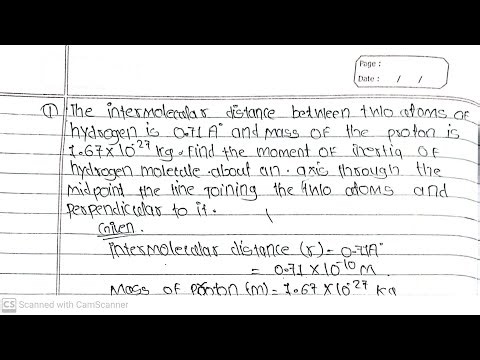 Page :
Date : / /
① The intermolecular distance between two atoms of
hydrogen is 0.71 A° and mass of the proton is
1.67×10⁻²⁷ kg. Find the moment of inertia of
hydrogen molecule about an axis through the
midpoint the line joining the two atoms and
perpendicular to it.
Given.
Intermolecular distance (r) = 0.71A°
= 0.71 × 10⁻¹⁰ M
Mass of proton (m) = 1.67 × 10⁻²⁷ kg
CS Scanned with CamScanner